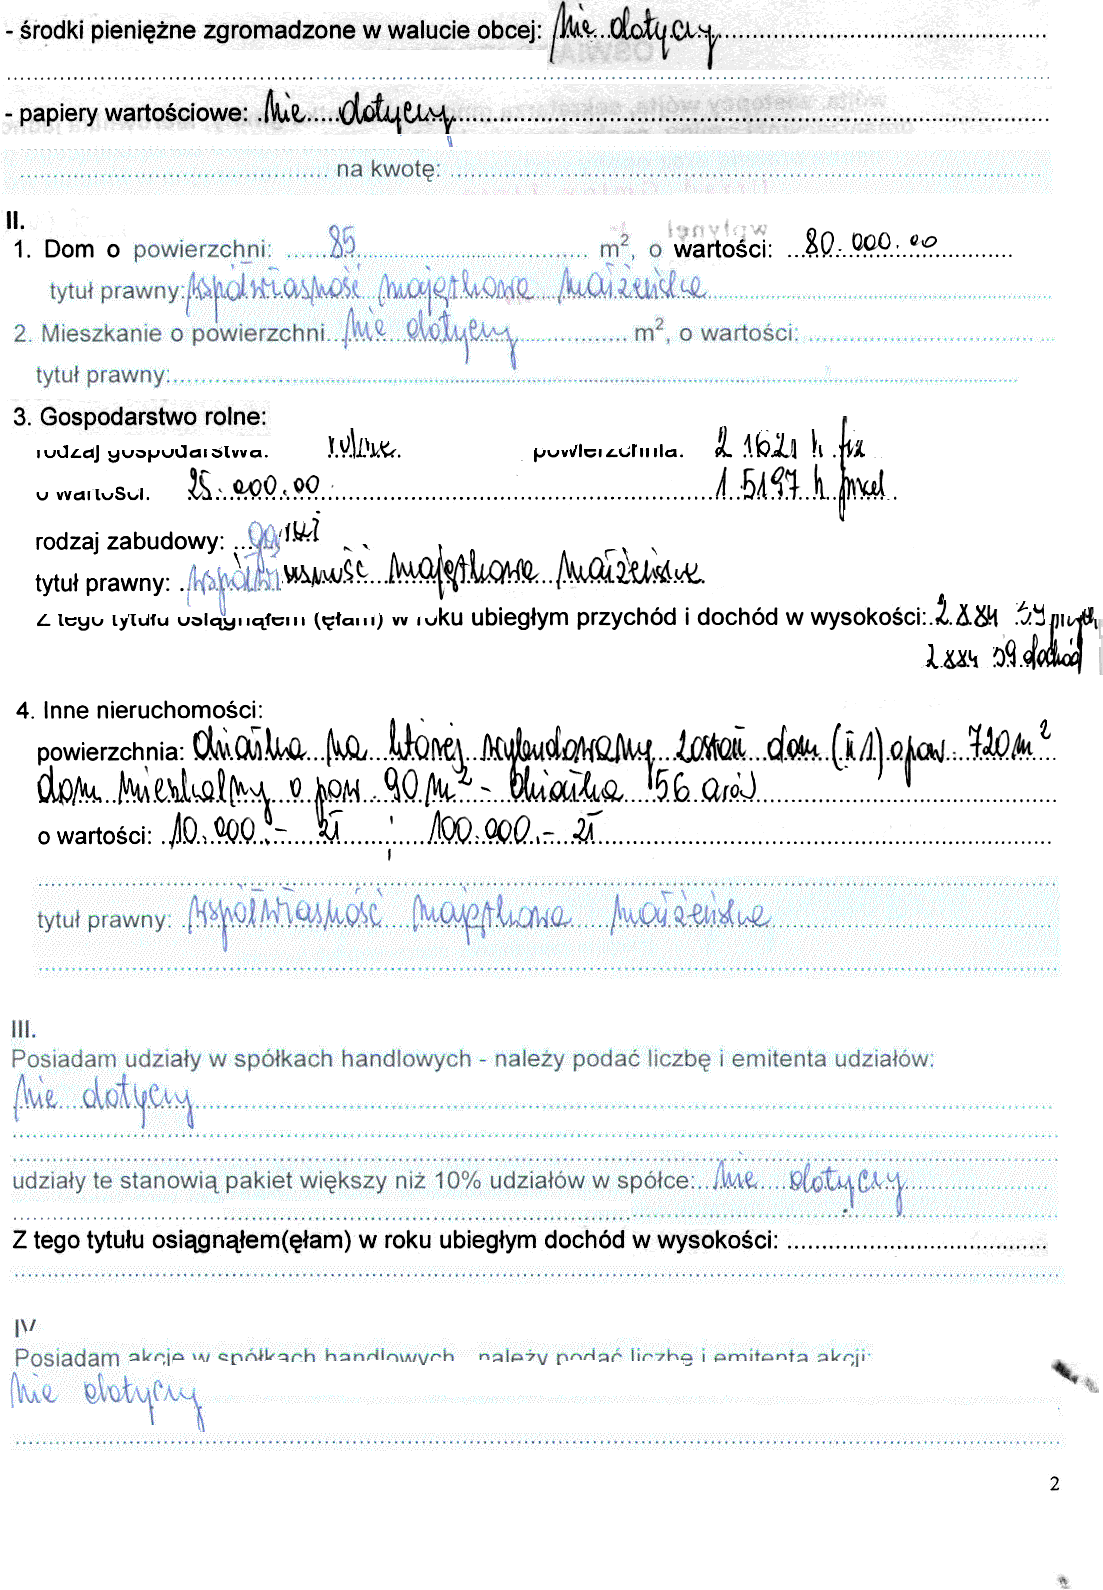 - środki pieniężne zgromadzone w walucie obcej: Nie dotyczy
- papiery wartościowe: Nie dotyczy
na kwotę:
II.
1. Dom o powierzchni: 85 m², o wartości: 80.000.00
tytuł prawny: współwłasność majątkowa małżeńska
2. Mieszkanie o powierzchni Nie dotyczy m², o wartości:
tytuł prawny:
3. Gospodarstwo rolne:
rodzaj gospodarstwa: rolne powierzchnia: 2.1621 h fiz
o wartości: 25.000.00 1.5197 h przel.
rodzaj zabudowy:
tytuł prawny: współwłasność majątkowa małżeńska
Z tego tytułu osiągnąłem (ęłam) w roku ubiegłym przychód i dochód w wysokości: 2.884 59 przych
2.884 59 dochód
4. Inne nieruchomości:
powierzchnia: działka na której wybudowany został dom (II 1) o pow. 720 m²
dom mieszkalny o pow. 90 m² - działka 56 arów
o wartości: 10.000.- zł ; 100.000.- zł
tytuł prawny: współwłasność majątkowa małżeńska
III.
Posiadam udziały w spółkach handlowych - należy podać liczbę i emitenta udziałów:
Nie dotyczy
udziały te stanowią pakiet większy niż 10% udziałów w spółce: Nie dotyczy
Z tego tytułu osiągnąłem(ęłam) w roku ubiegłym dochód w wysokości:
IV
Posiadam akcje w spółkach handlowych należy podać liczbę i emitenta akcji:
Nie dotyczy
2